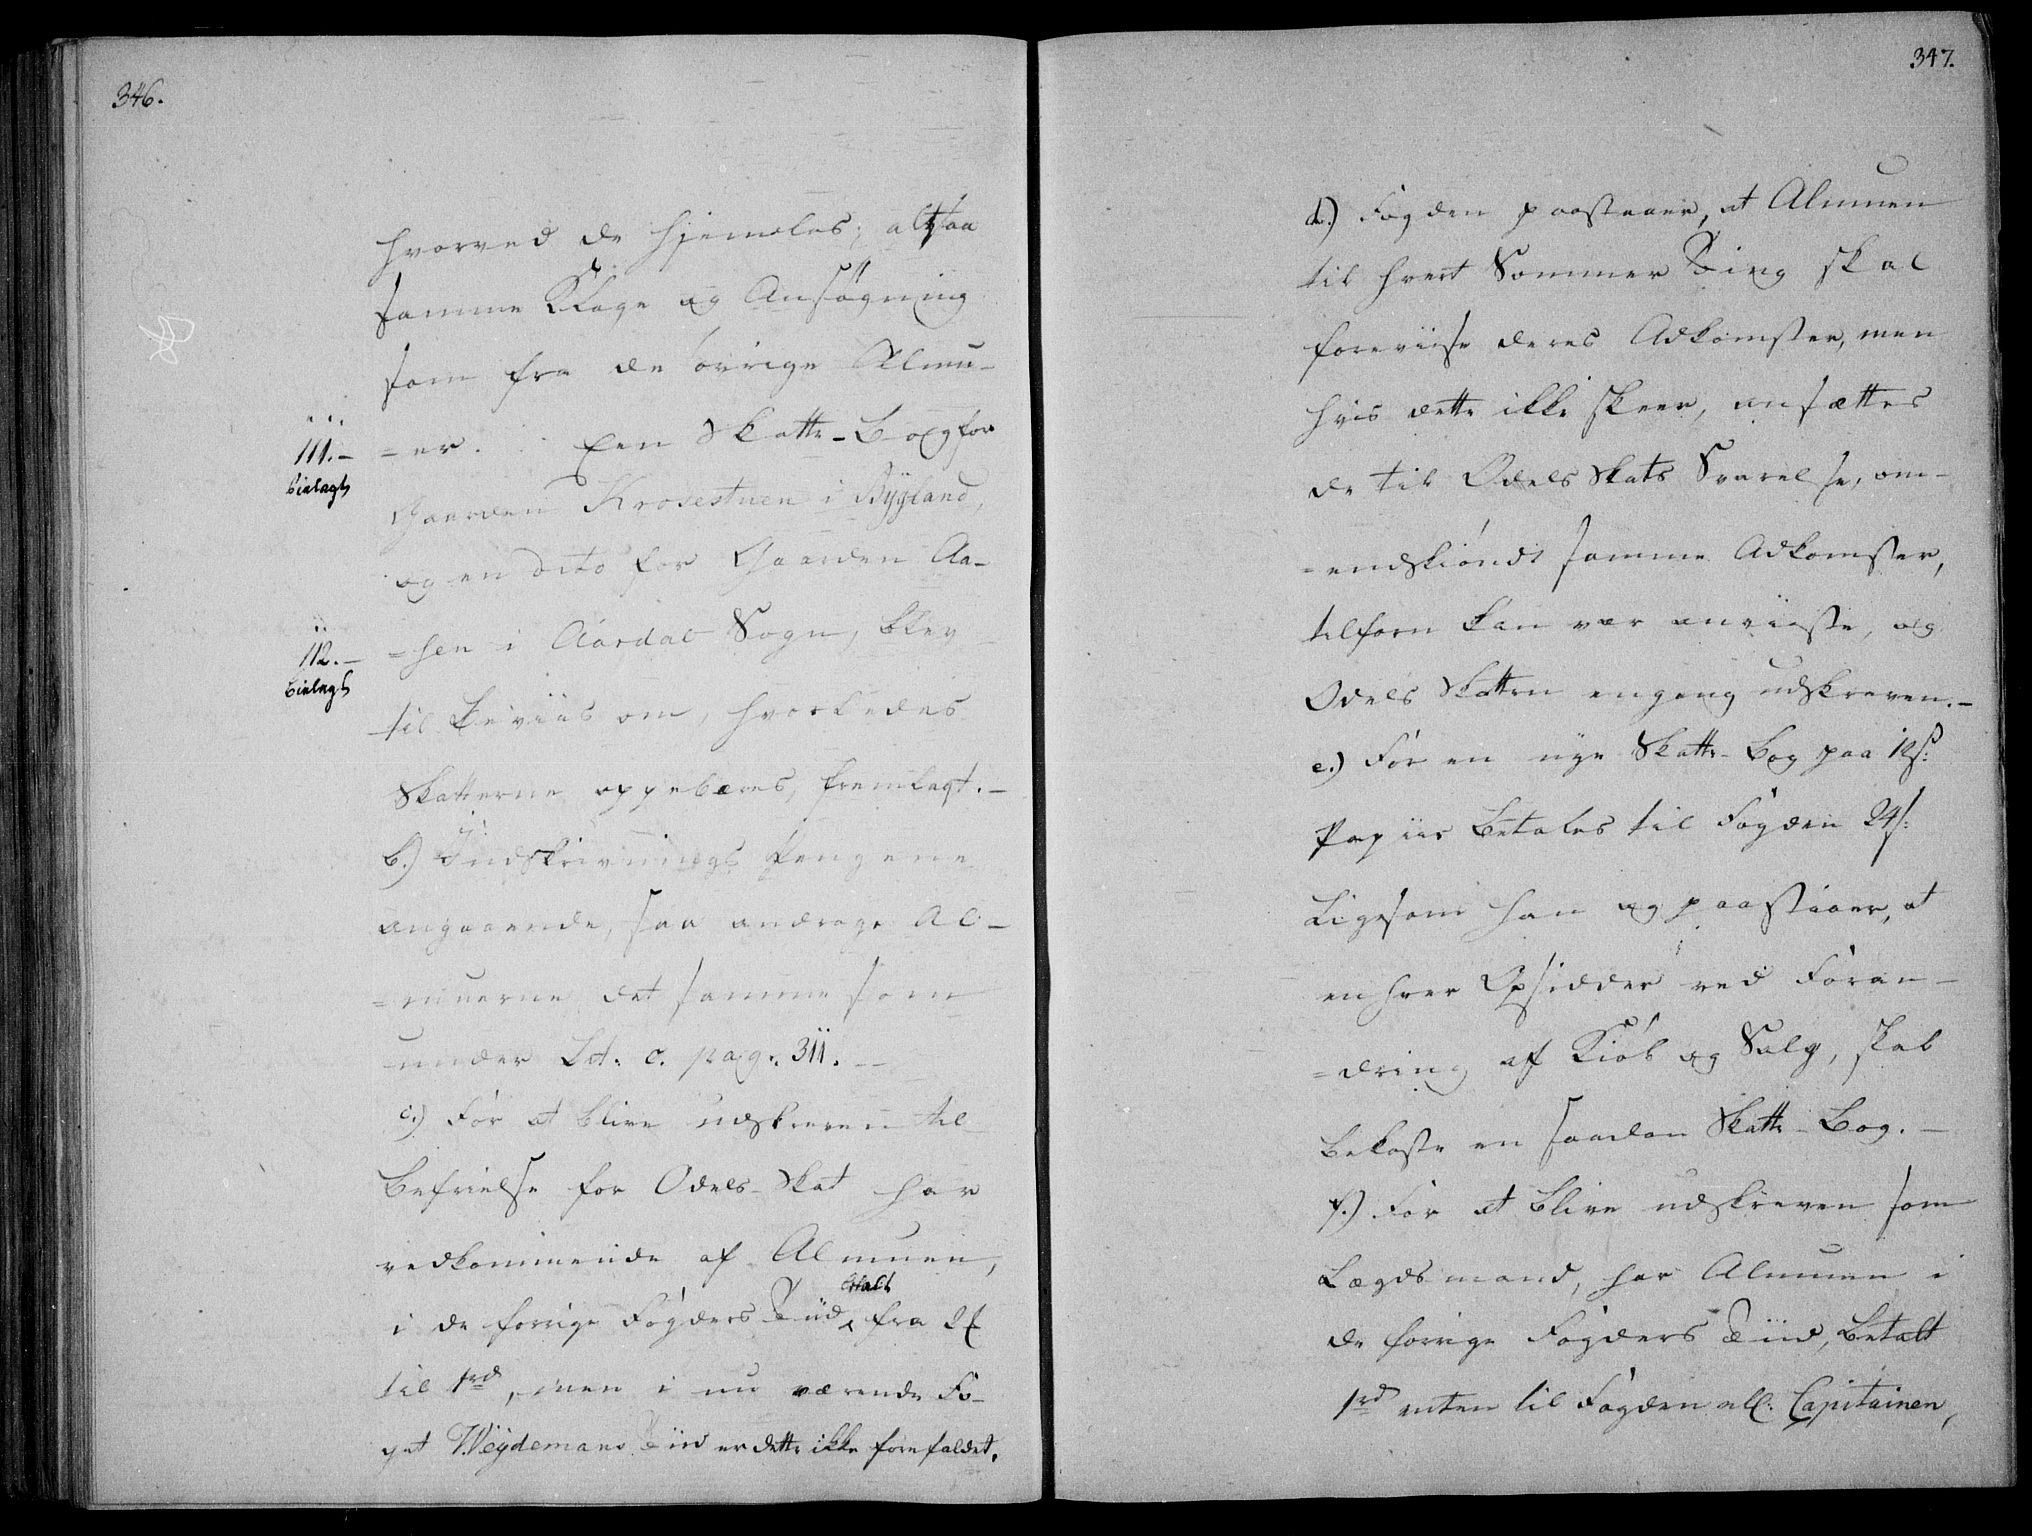 346.
hvorved de hjemles; altsaa
samme Klage og Ansøgning
som fra de øvrige Almu-
111.-
=er. Een Skatte-Bog for
bielagt
Gaarden Krosestuen i Bygland,
og en dito for Gaarden Aa-
112.-
=sen i Aardal Sogn, blev
bielagt
til Beviis om, hvorledes
Skatterne oppebæres, fremlagt.-
b.) Indskrivnings Pengene
angaaende, saa andrage Al-
=muerne det samme som
under Lit. c. pag. 311.-
c.) For at blive udskreven til
Befrielse for Odels-Skat har
vedkommende af Almuen,
betalt
i de forrige Fogders Tiid fra
til 1rd, men i nu værende Fo-
get Weydemans Tiid er dette ikke forefaldet.
347.
d.) Fogden paastaaer, at Almuen
til hvert Sommer Ting skal
foreviise deres Adkomster, men
hvis dette ikke skeer, ansættes
de til Odels Skats Svarelse, om-
=endskiøndt samme Adkomster,
tilforn kan vær anviiste, og
Odels Skatten engang udskreven.-
e.) For en nye Skatte-Bog paa 12s:
Papiir betales til Fogden 24s:
Ligesom han og paastaaer, at
enhver Opsidder ved Foran-
=dring af Kiøb og Salg, skal
bekoste en saadan Skatte-Bog.-
f.) For at blive udskreven som
Lægdsmand, har Almuen i
de forrige Fogders Tiid, betalt
1rd enten til Fogden ell: Capitainen,